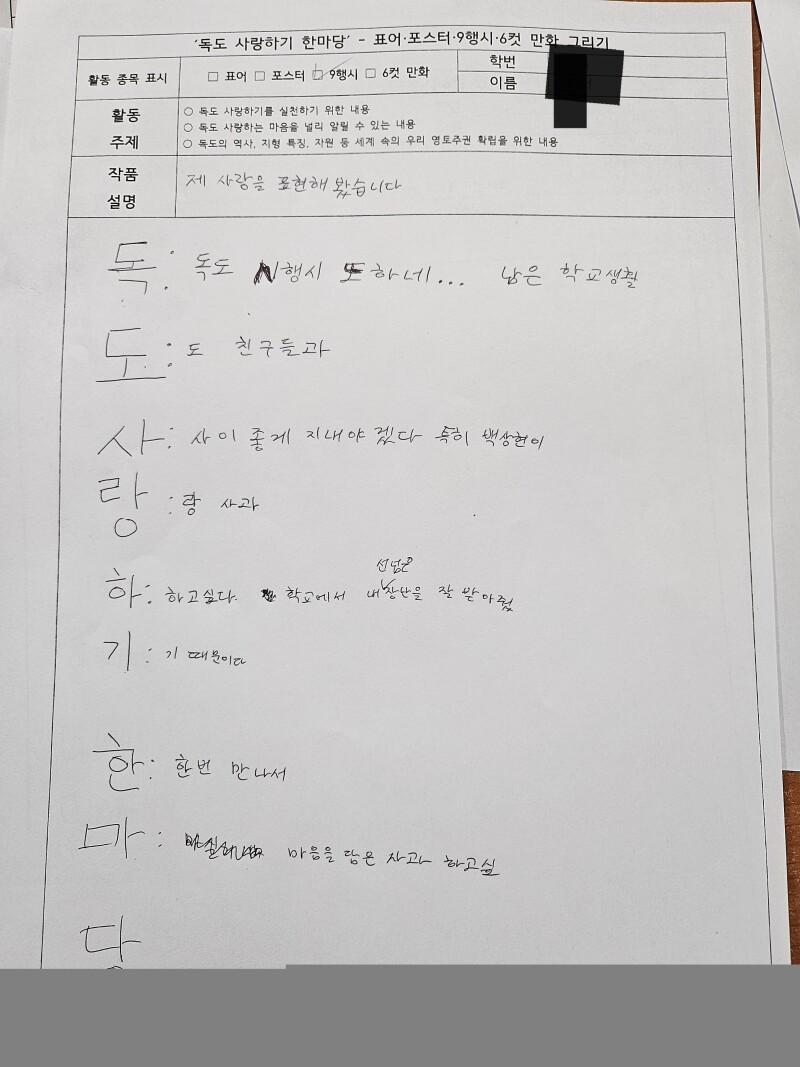 '독도 사랑하기 한마당' - 표어·포스터·9행시·6컷 만화 그리기
활동 종목 표시 □ 표어 □ 포스터 □ 9행시 □ 6컷 만화
학번
이름
활동
주제
○ 독도 사랑하기를 실천하기 위한 내용
○ 독도 사랑하는 마음을 널리 알릴 수 있는 내용
○ 독도의 역사, 지형 특징, 자원 등 세계 속의 우리 영토주권 확립을 위한 내용
작품
설명
제 사랑을 표현해 봤습니다
독: 독도 행시 또 하네... 남은 학교생활
도: 도 친구들과
사: 사이 좋게 지내야겠다 특히 백상현이
랑: 랑 사과
하: 하고싶다. 학교에서 선넘은 내 장난을 잘 받아줬
기: 기 때문이다
한: 한번 만나서
마: 마음을 담은 사과 하고싶